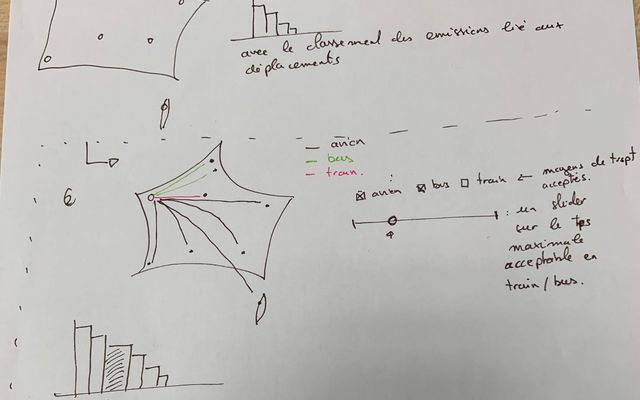 avec le classement des emissions lié aux
déplacements
avion
bus
train.
6
avion bus train ← moyens de trspt
acceptés.
: un slider
sur le tps
maximale
acceptable en
train/bus.
4